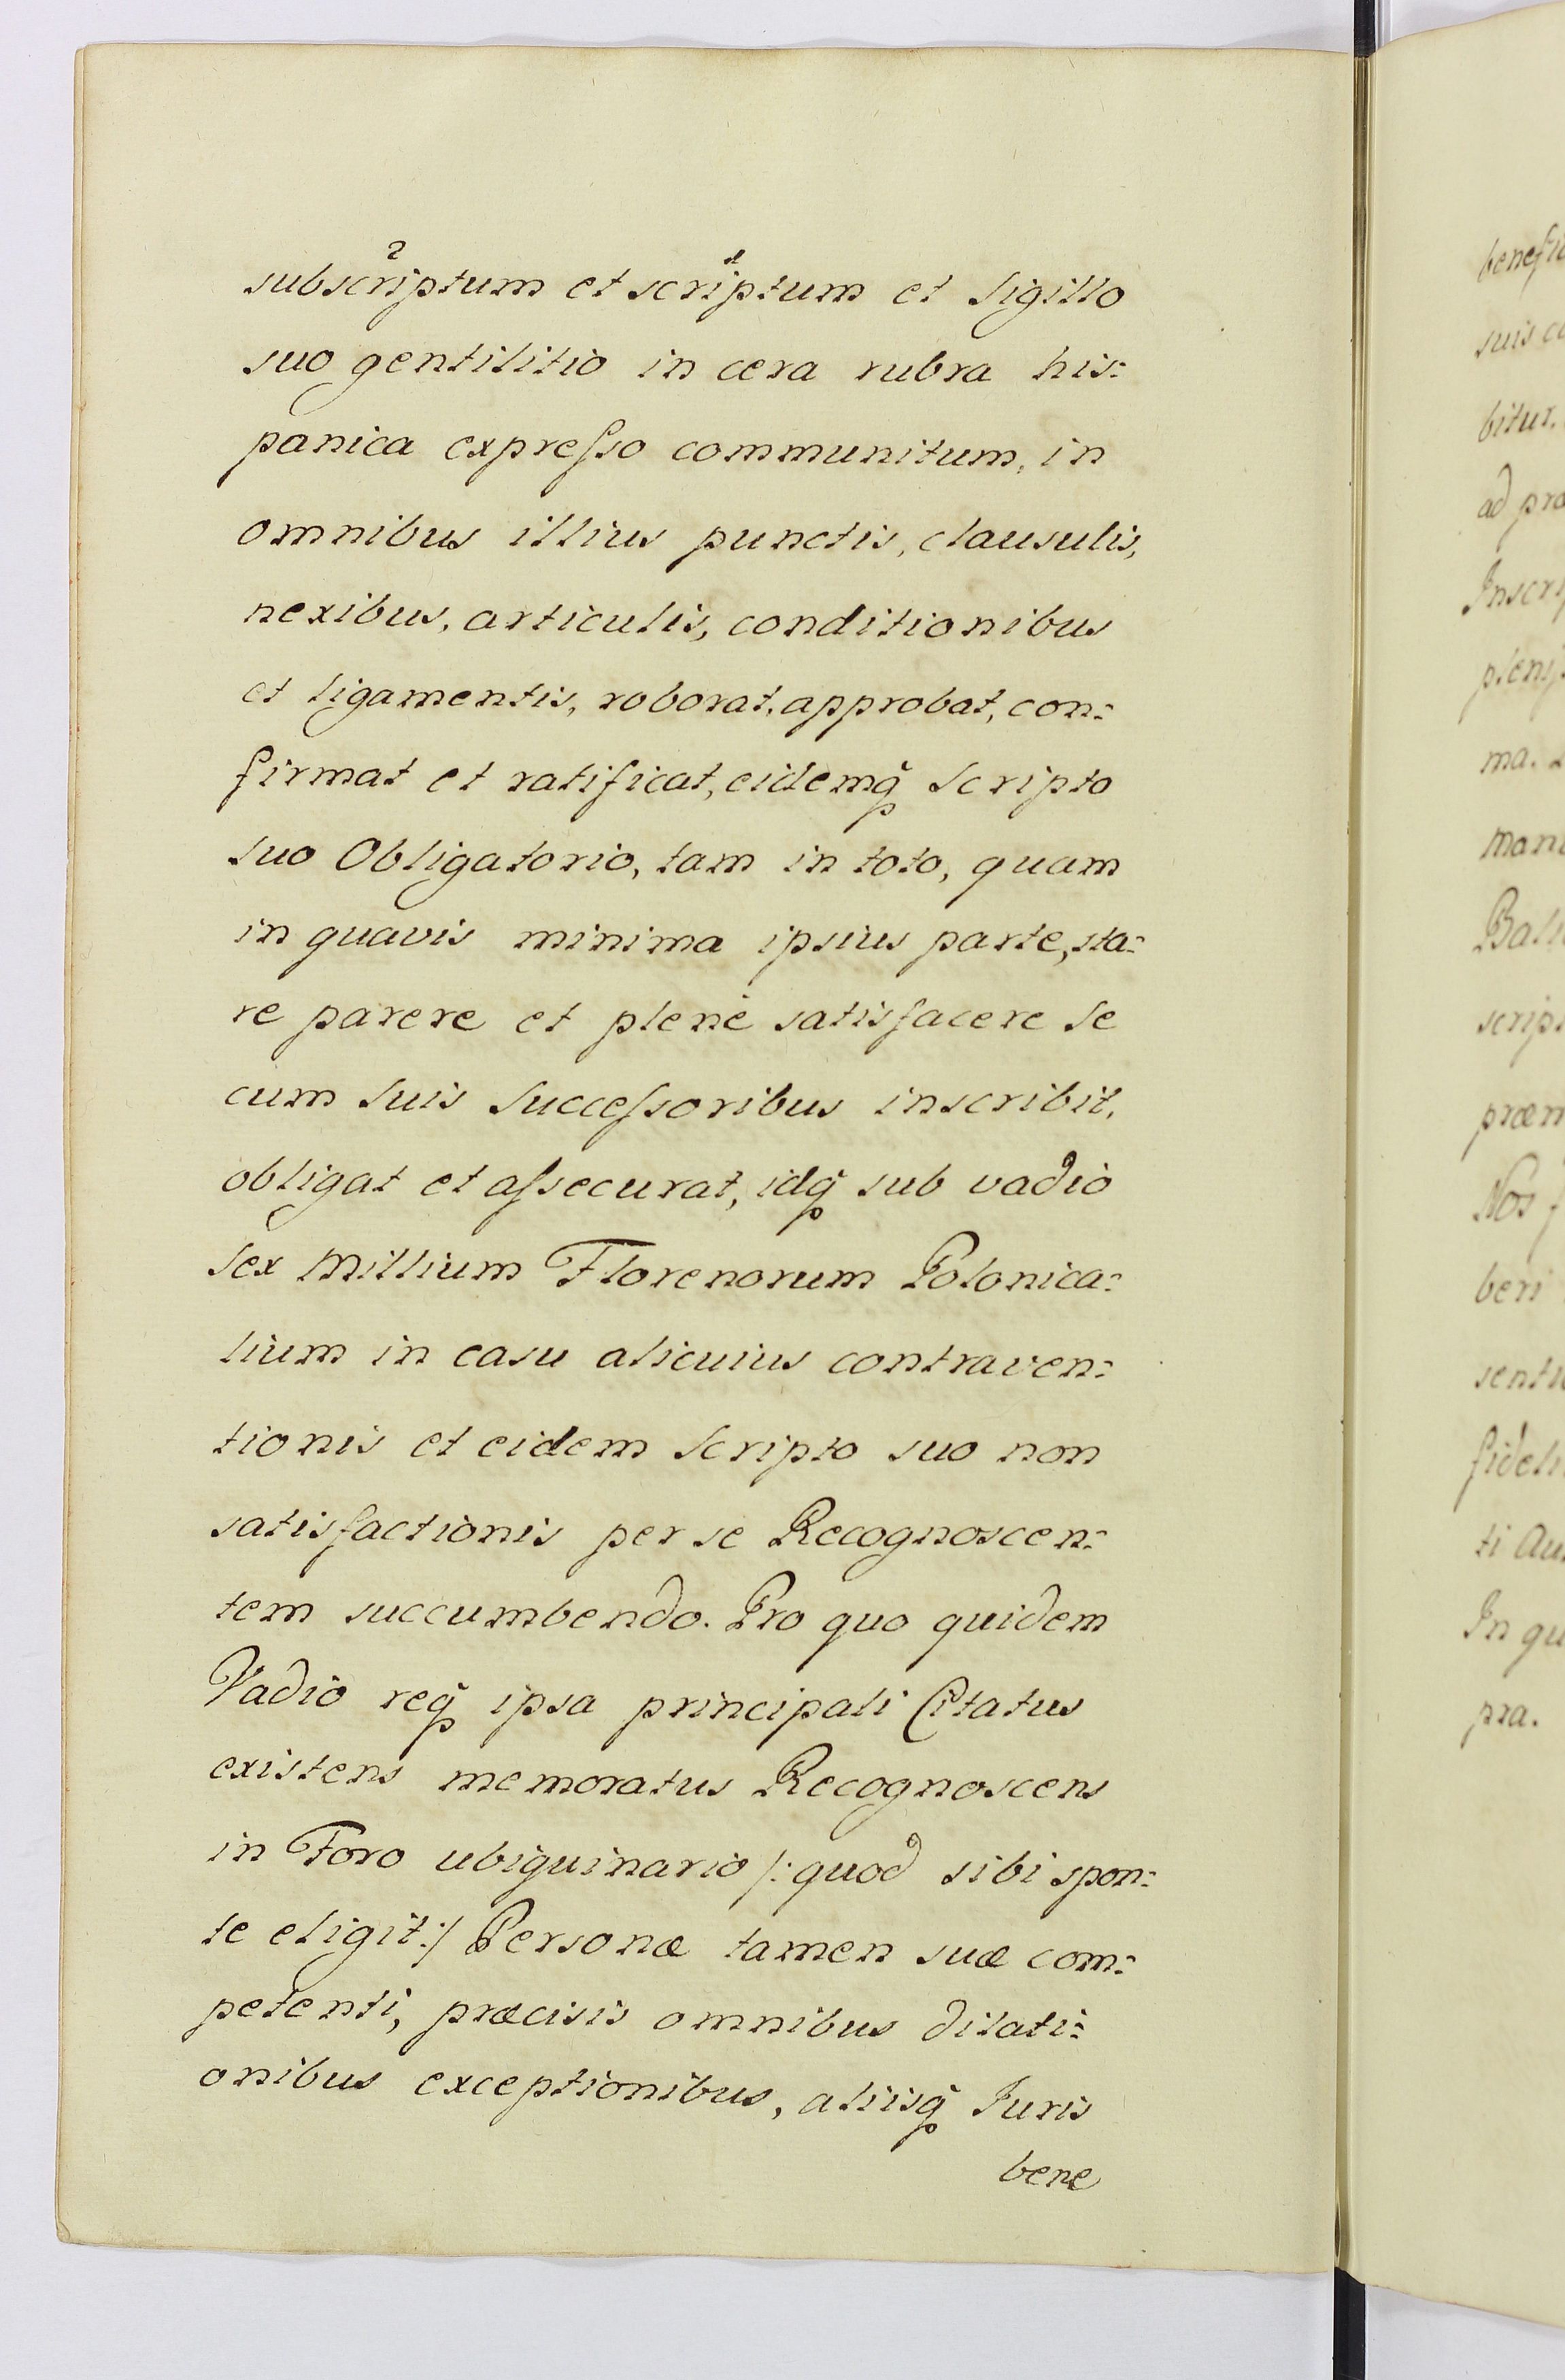 subscriptum et scriptum et Sigillo
suo gentilitio in cera rubra his:
panica expreſso communitum, in
omnibus illius punctis, clausulis,
nexibus, articulis, conditionibus
et ligamentis, roborat, approbat, con:
firmat et ratificat, eidemq̃ Scripto
suo Obligatorio, tam in toto, quam
in quavis minima ipsius parte, sta:
re parere et plenè satisfacere se
cum suis Succeſsoribus inscribit,
obligat et aſsecurat, idq̃ sub vadio
Sex Millium Florenorum Polonica:
lium in casu alicuius contraven:
tionis et eidem Scripto suo non
satisfactionis per se Recognoscen:
tem succumbendo. Pro quo quidem
Vadio req̃ ipsa principali Citatus
existens memoratus Recognoscens
in Foro ubiquinario /: quod sibi spon:
te eligit :/ Personæ tamen suæ com:
petenti, præcisis omnibus dilati:
onibus exceptionibus, aliisq̃ Juris
bene
suis
bitur.
ad
ma.
scrip
Nos
beri
ti
In
pra.